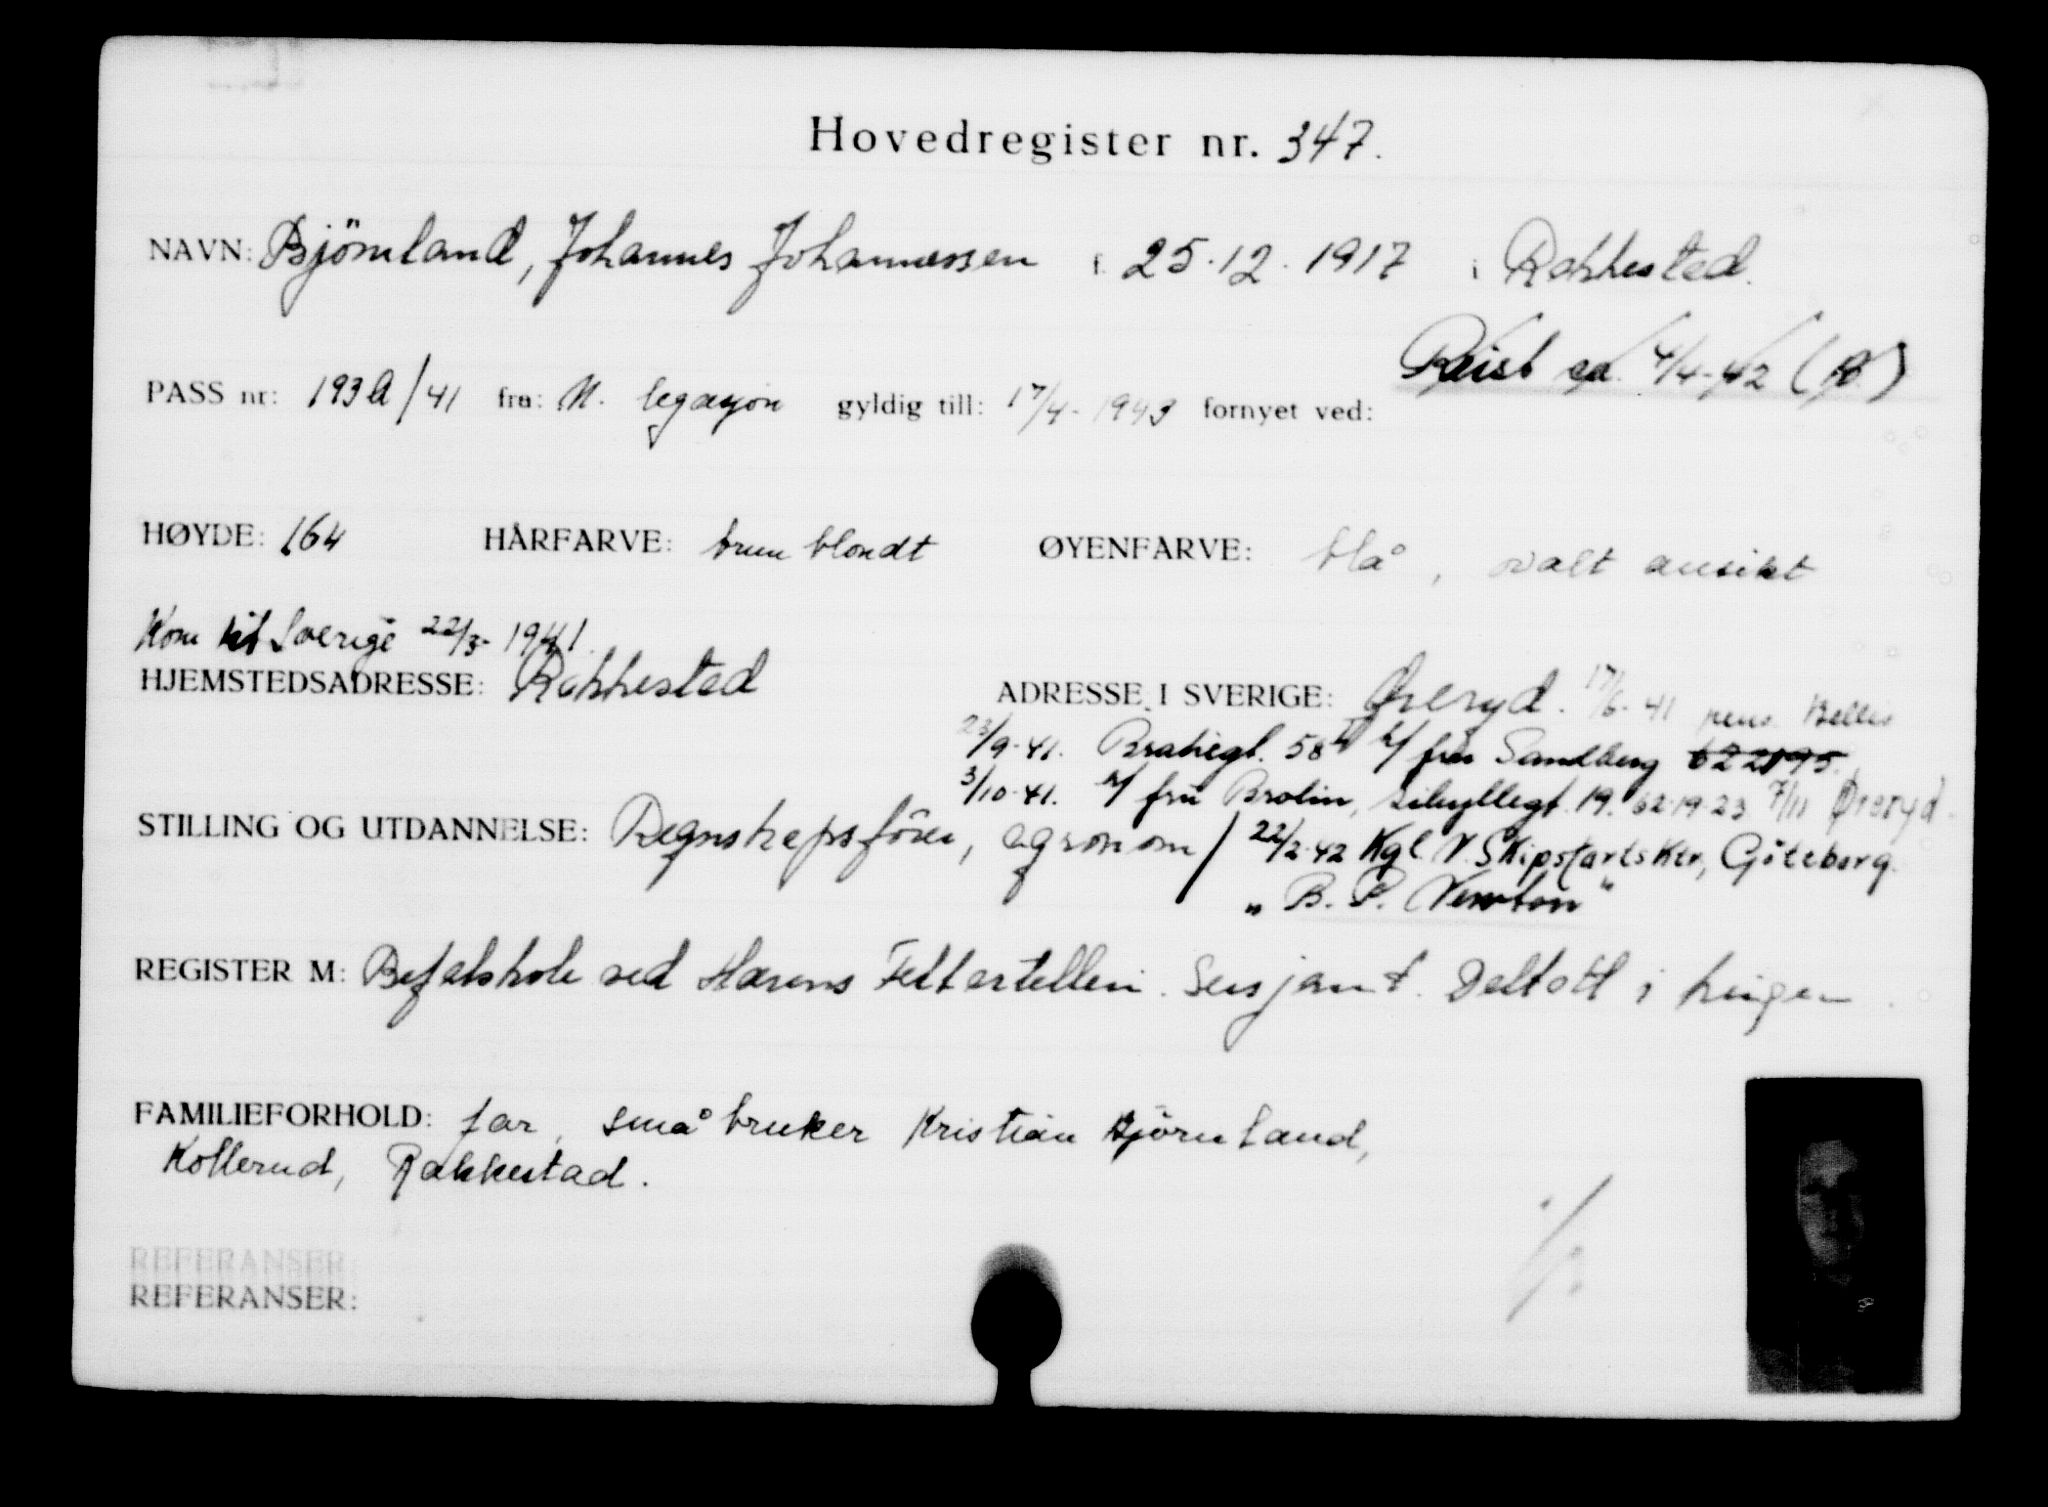 Hovedregister nr. 347.
NAVN: Bjørnland, Johannes Johannessen f. 25.12.1917 i Rakkestad.
Reist 4/4-42 (R)
PASS nr: 193a/41 fra: N. legasjon gyldig till: 17/4-1943 fornyet ved:
HØYDE: 164 HÅRFARVE: brun blondt ØYENFARVE: blå, ovalt ansikt
Kom till Sverige 22/3-1941.
HJEMSTEDSADRESSE: Rakkestad ADRESSE I SVERIGE: Øreryd. 17/6-41 pens Bellis
23/9-41. 58 fru Sandberg 622195.
3/10-41. c/o fru Brolin, Sibyllegt. 19. 62.19.23 7/11 Øreryd.
STILLING OG UTDANNELSE: Regnskapsfører, agronom / 22/2-42 Kgl. N. Skipsfartsktr, Göteborg.
"B. P. Newton"
REGISTER M: Befalskole ved Hærens Feltartilleri. Sersjant. Deltatt i krigen.
FAMILIEFORHOLD: far, småbruker Kristian Bjørnland,
Kollerud, Rakkestad.
REFERANSER
REFERANSER: